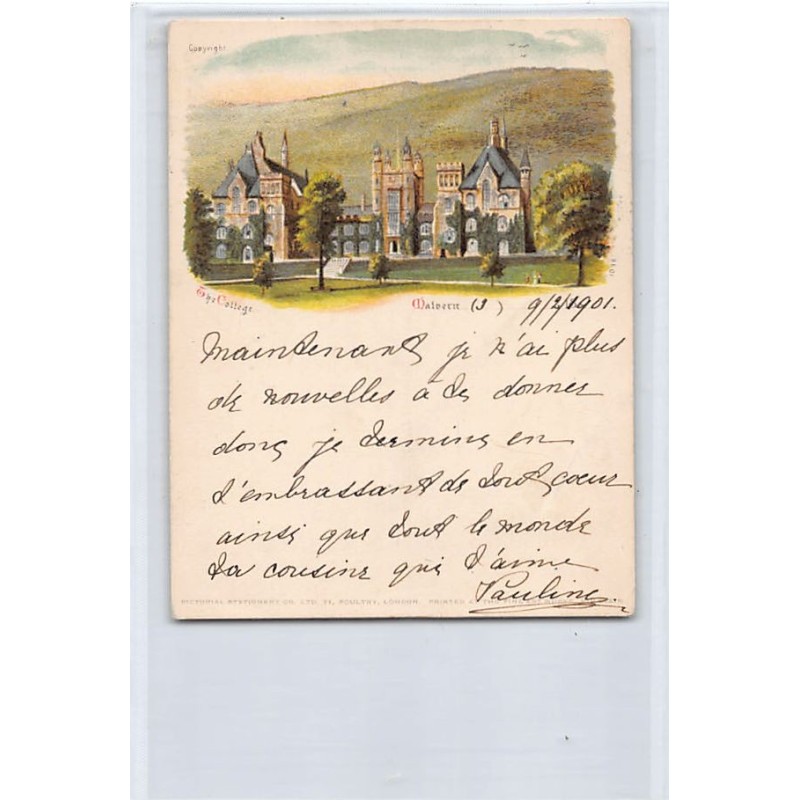 Copyright
The College
Malvern (3) 9/2/1901.
Maintenant je n'ai plus
de nouvelles à te donner
donc je termine en
t'embrassant de tout coeur
ainsi que tout le monde
Ta cousine qui t'aime
Pauline
PICTORIAL STATIONERY CO. LTD. 21, POULTRY, LONDON. PRINTED AT THE